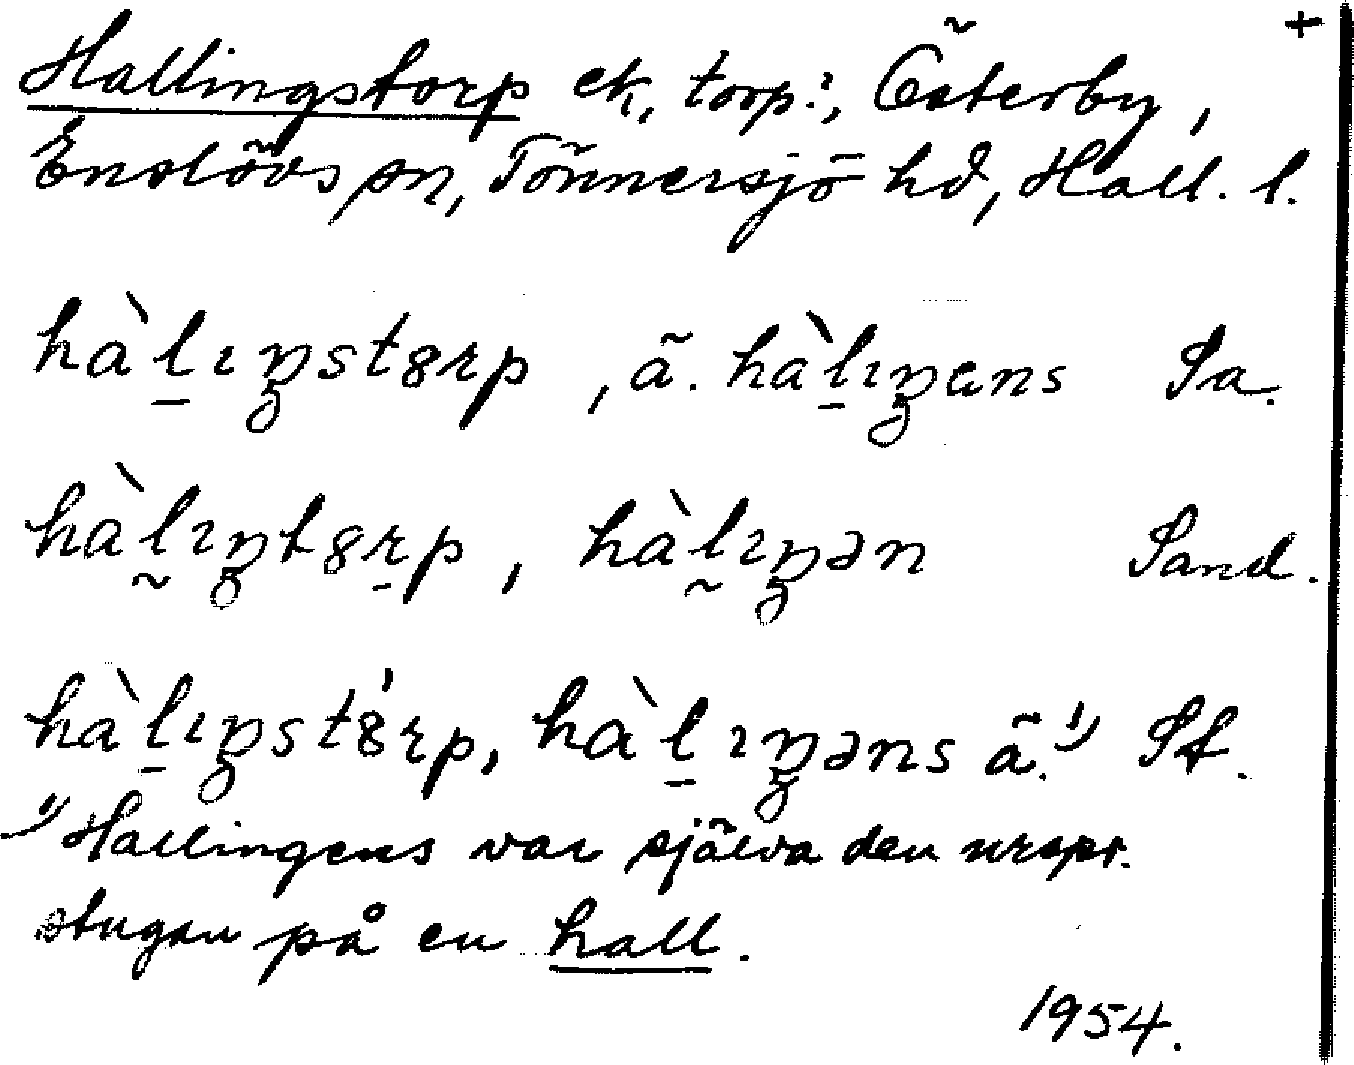 +
Hallingstorp ek, torp:, Österby,
Enslövs sn, Tönnersjö hd, Hall. l.
hàḻıŋstȣrp, ã. hàḻıŋens Sa.
hàl̰ıŋtȣṟp, hàl̰ıŋən Sand.
hàḻıŋstȣ́rp, hàḻıŋəns ã.¹⁾ St.
¹⁾ Hallingens var själva den urspr.
stugan på en hall.
1954.